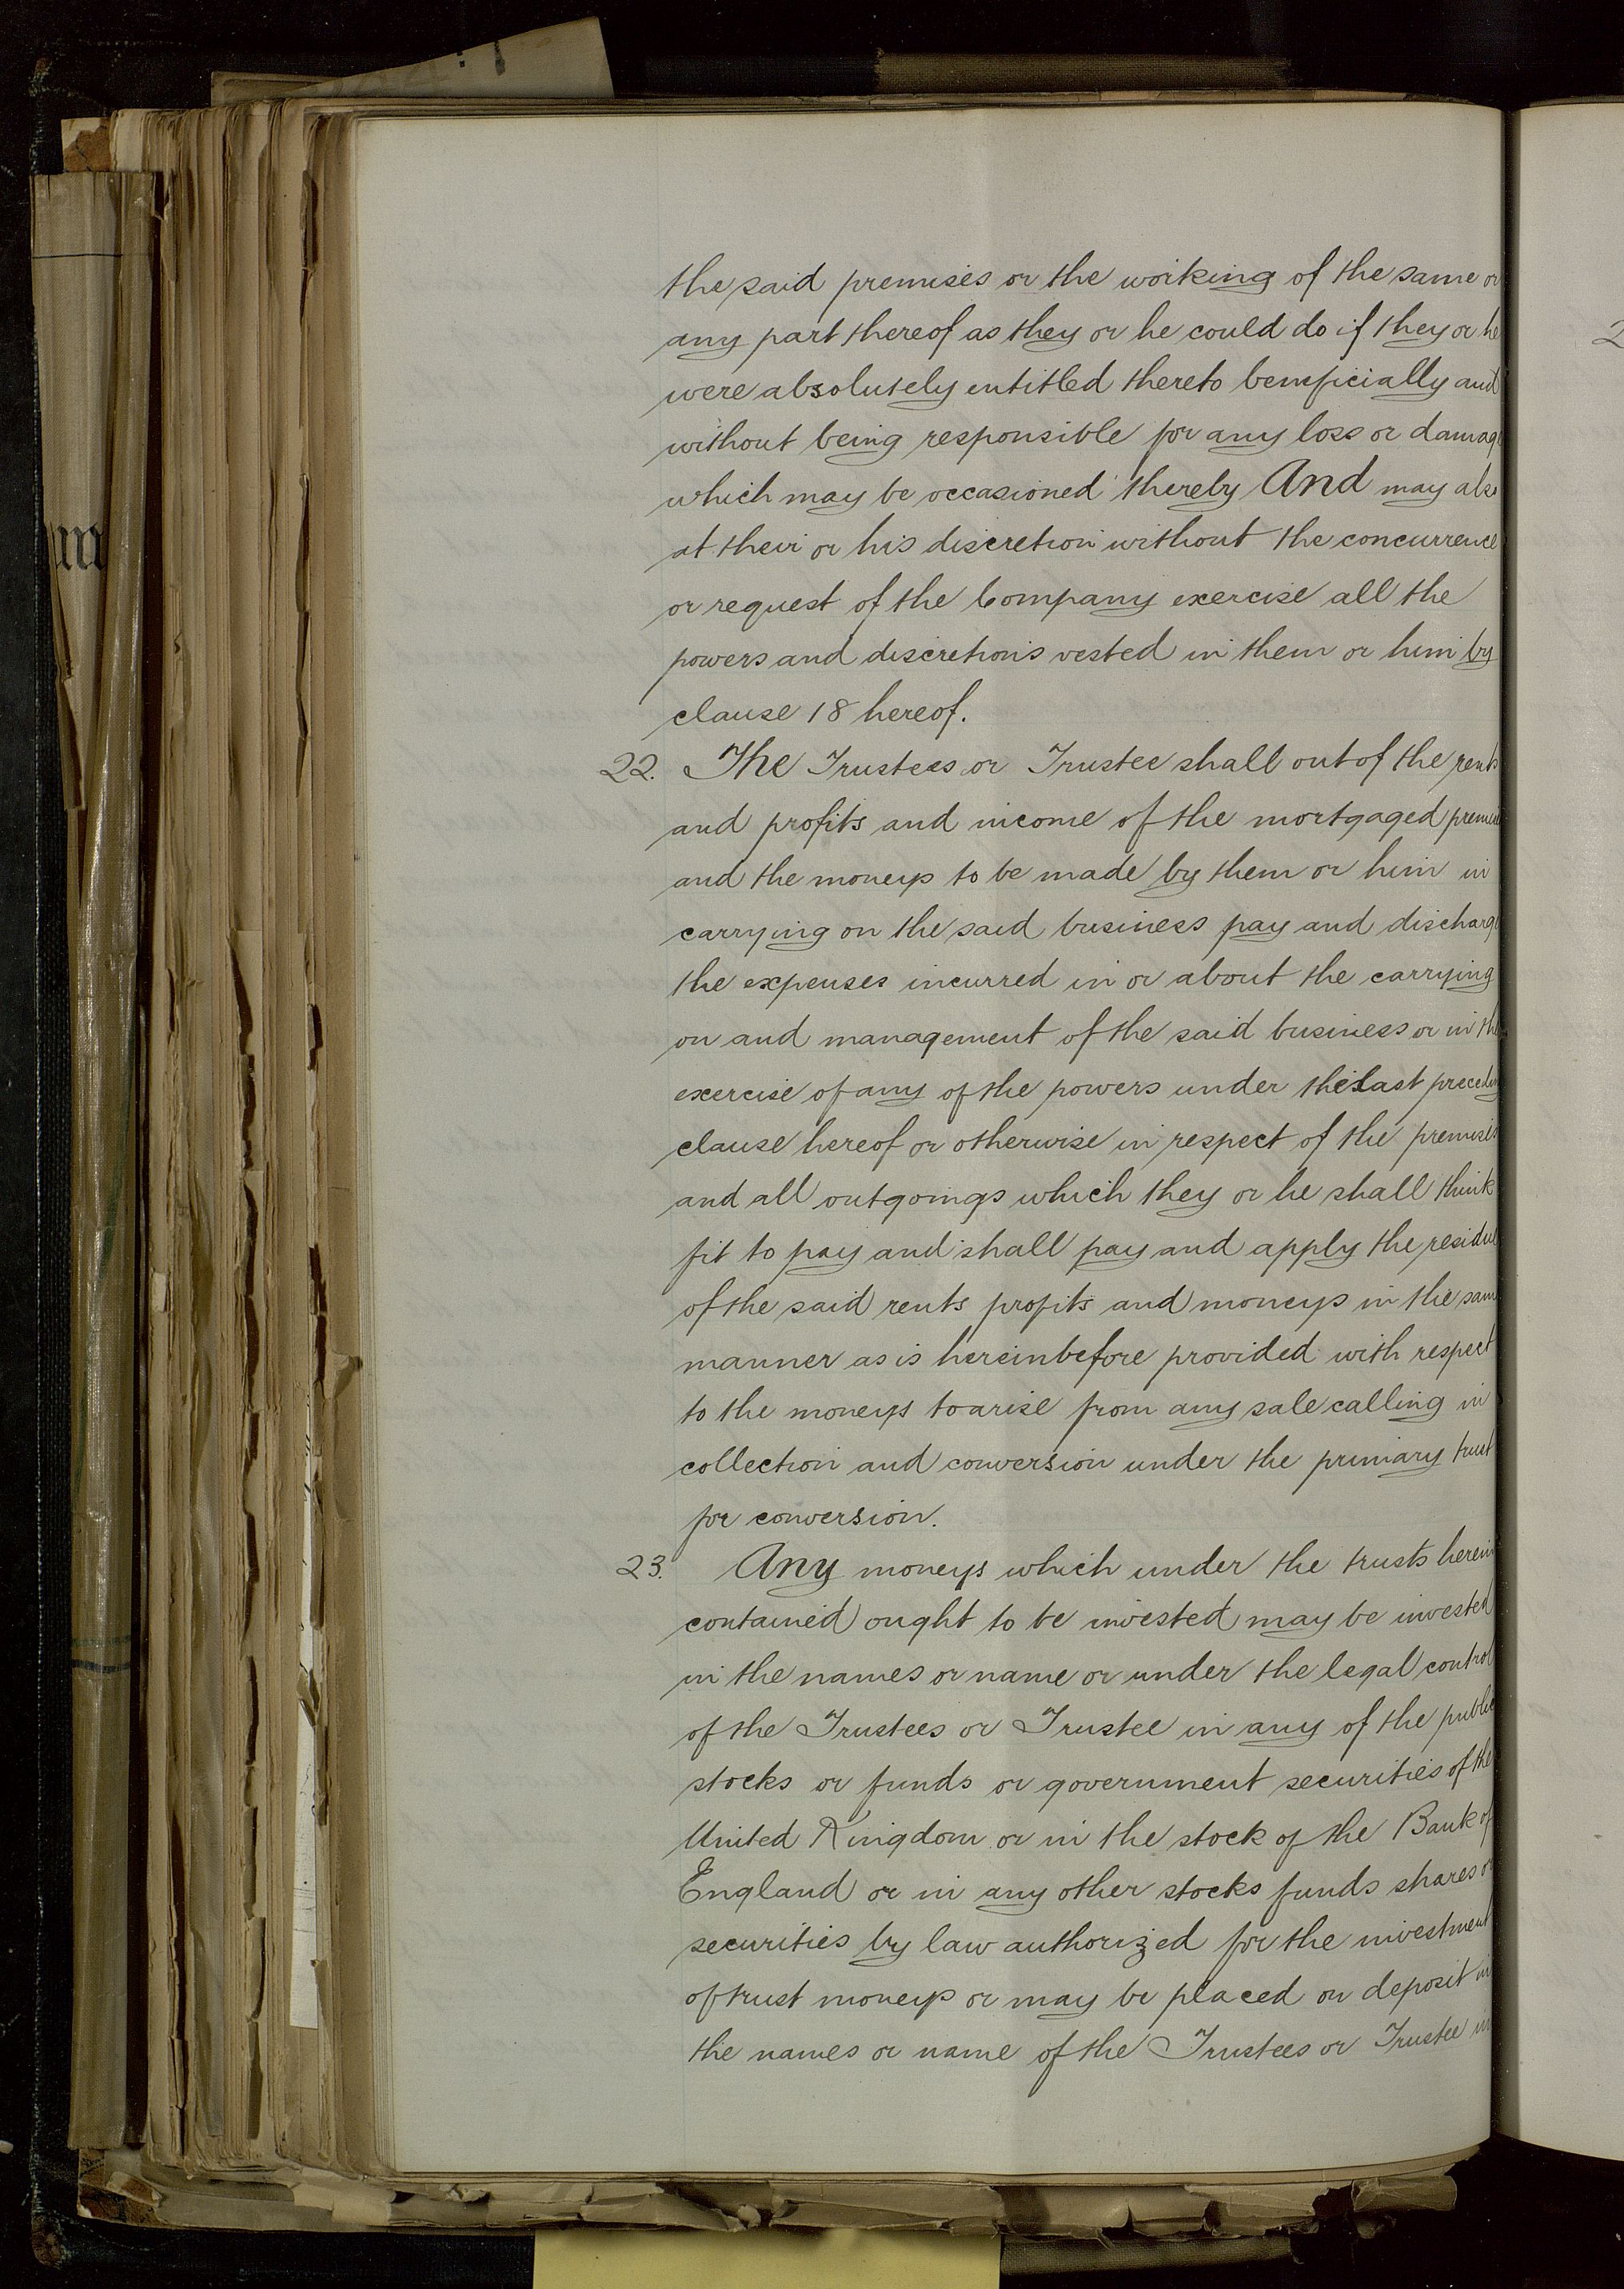 the said premises or the working of the same or
any part thereof as they or he could do if they or he
were absolutely entitled thereto beneficially and
without being responsible for any loss or damage
which may be occasioned thereby And may also
at their or his discretion without the concurrence
or request of the Company exercise all the
powers and discretions vested in them or him by
clause 18 hereof.
22. The Trustees or Trustee shall out of the rents
and profits and income of the mortgaged premises
and the moneys to be made by them or him in
carrying on the said business pay and discharge
the expenses incurred in or about the carrying
on and management of the said business or in the
exercise of any of the powers under the last preceding
clause hereof or otherwise in respect of the premises
and all outgoings which they or he shall think
fit to pay and shall pay and apply the residue
of the said rents profits and moneys in the same
manner as is hereinbefore provided with respect
to the moneys to arise from any sale calling in
collection and conversion under the primary trust
for conversion.
23. Any moneys which under the trusts herein
contained ought to be invested may be invested
in the names or name or under the legal control
of the Trustees or Trustee in any of the public
stocks or funds or government securities of the
United Kingdom or in the stock of the Bank of
England or in any other stocks funds shares or
securities by law authorized for the investment
of trust moneys or may be placed on deposit in
the names or name of the Trustees or Trustee in